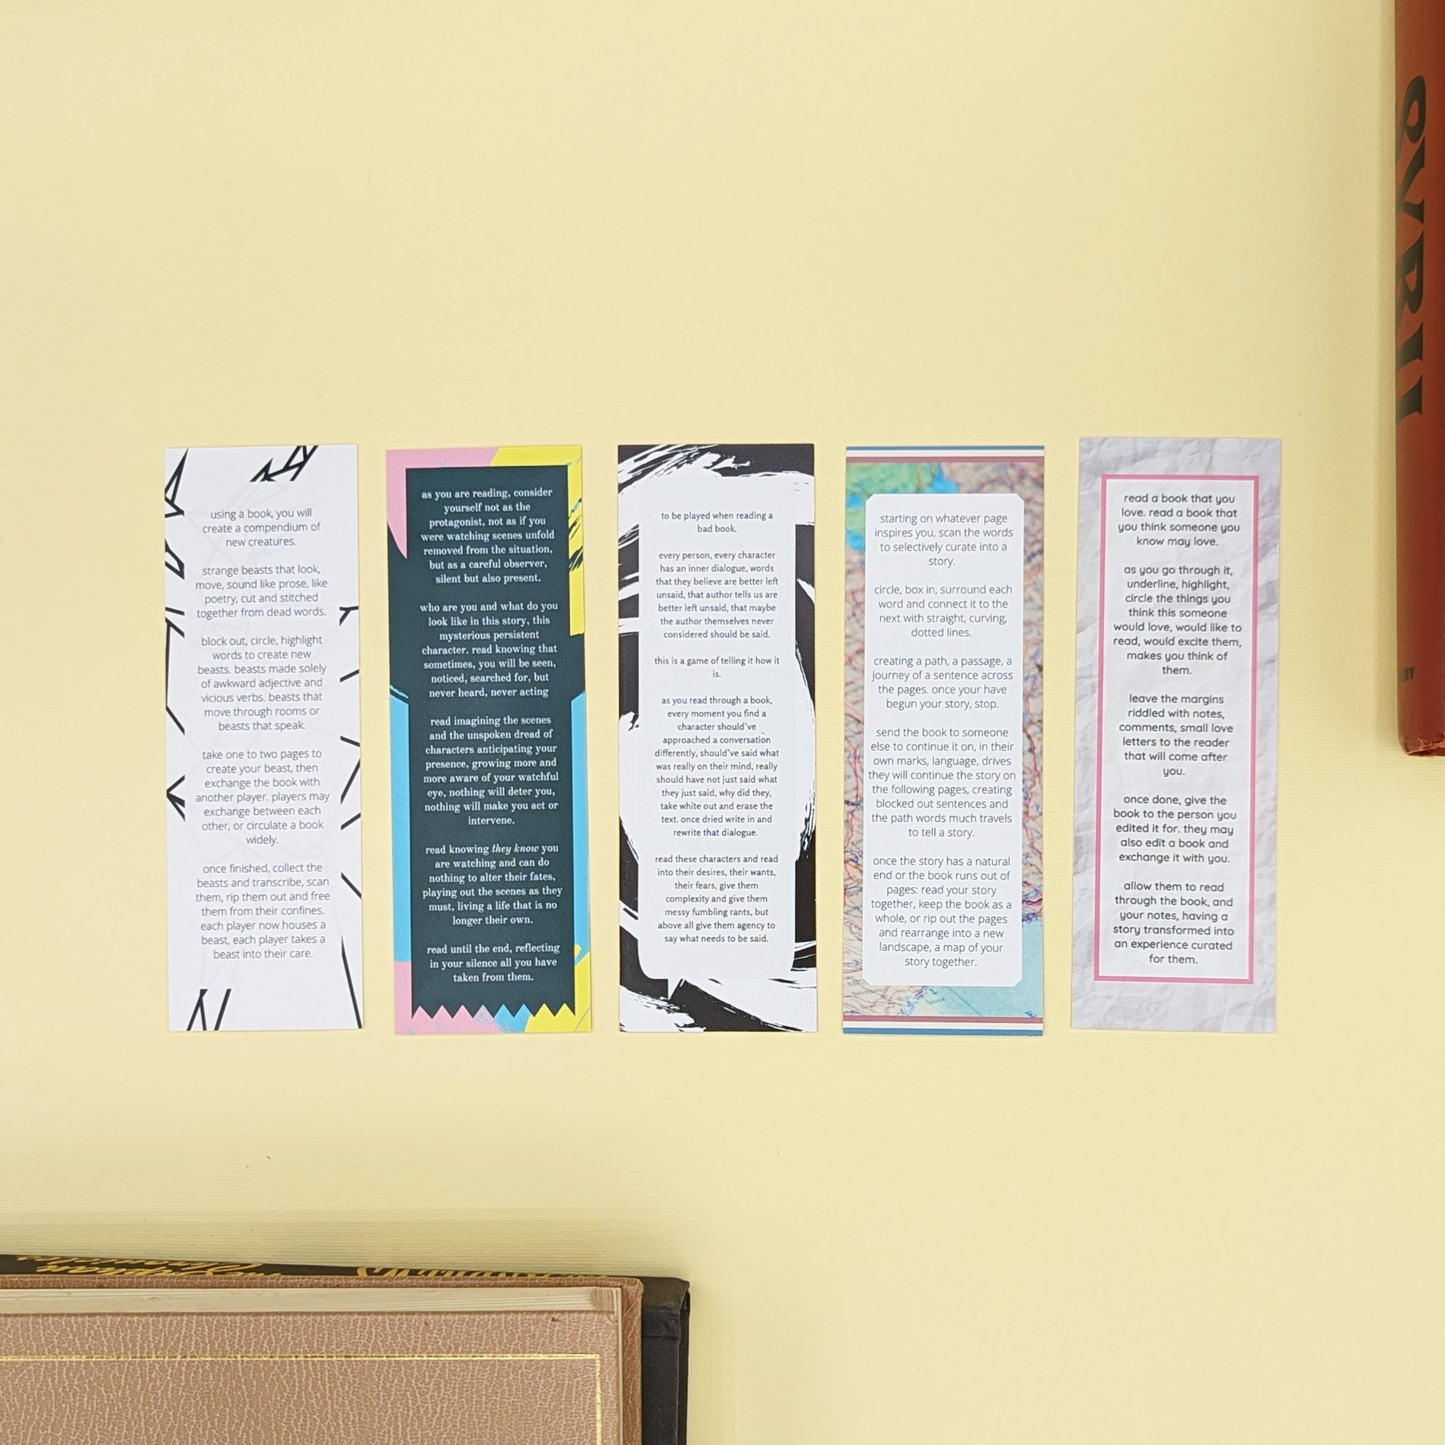 using a book, you will
create a compendium of
new creatures.
strange beasts that look,
move, sound like prose, like
poetry, cut and stitched
together from dead words.
block out, circle, highlight
words to create new
beasts. beasts made solely
of awkward adjective and
vicious verbs. beasts that
move through rooms or
beasts that speak.
take one to two pages to
create your beast, then
exchange the book with
another player. players may
exchange between each
other, or circulate a book
widely.
once finished, collect the
beasts and transcribe, scan
them, rip them out and free
them from their confines.
each player now houses a
beast, each player takes a
beast into their care.
as you are reading, consider
yourself not as the
protagonist, not as if you
were watching scenes unfold
removed from the situation,
but as a careful observer,
silent but also present.
who are you and what do you
look like in this story, this
mysterious persistent
character. read knowing that
sometimes, you will be seen,
noticed, searched for, but
never heard, never acting
read imagining the scenes
and the unspoken dread of
characters anticipating your
presence, growing more and
more aware of your watchful
eye, nothing will deter you,
nothing will make you act or
intervene.
read knowing they know you
are watching and can do
nothing to alter their fates,
playing out the scenes as they
must, living a life that is no
longer their own.
read until the end, reflecting
in your silence all you have
taken from them.
to be played when reading a
bad book.
every person, every character
has an inner dialogue, words
that they believe are better left
unsaid, that author tells us are
better left unsaid, that maybe
the author themselves never
considered should be said.
this is a game of telling it how it
is.
as you read through a book,
every moment you find a
character should've
approached a conversation
differently, should've said what
was really on their mind, really
should have not just said what
they just said, why did they,
take white out and erase the
text. once dried write in and
rewrite that dialogue.
read these characters and read
into their desires, their wants,
their fears, give them
complexity and give them
messy fumbling rants, but
above all give them agency to
say what needs to be said.
starting on whatever page
inspires you, scan the words
to selectively curate into a
story.
circle, box in, surround each
word and connect it to the
next with straight, curving,
dotted lines.
creating a path, a passage, a
journey of a sentence across
the pages. once your have
begun your story, stop.
send the book to someone
else to continue it on, in their
own marks, language, drives
they will continue the story on
the following pages, creating
blocked out sentences and
the path words much travels
to tell a story.
once the story has a natural
end or the book runs out of
pages: read your story
together, keep the book as a
whole, or rip out the pages
and rearrange into a new
landscape, a map of your
story together.
read a book that you
love. read a book that
you think someone you
know may love.
as you go through it,
underline, highlight,
circle the things you
think this someone
would love, would like to
read, would excite them,
makes you think of
them.
leave the margins
riddled with notes,
comments, small love
letters to the reader
that will come after
you.
once done, give the
book to the person you
edited it for. they may
also edit a book and
exchange it with you.
allow them to read
through the book, and
your notes, having a
story transformed into
an experience curated
for them.